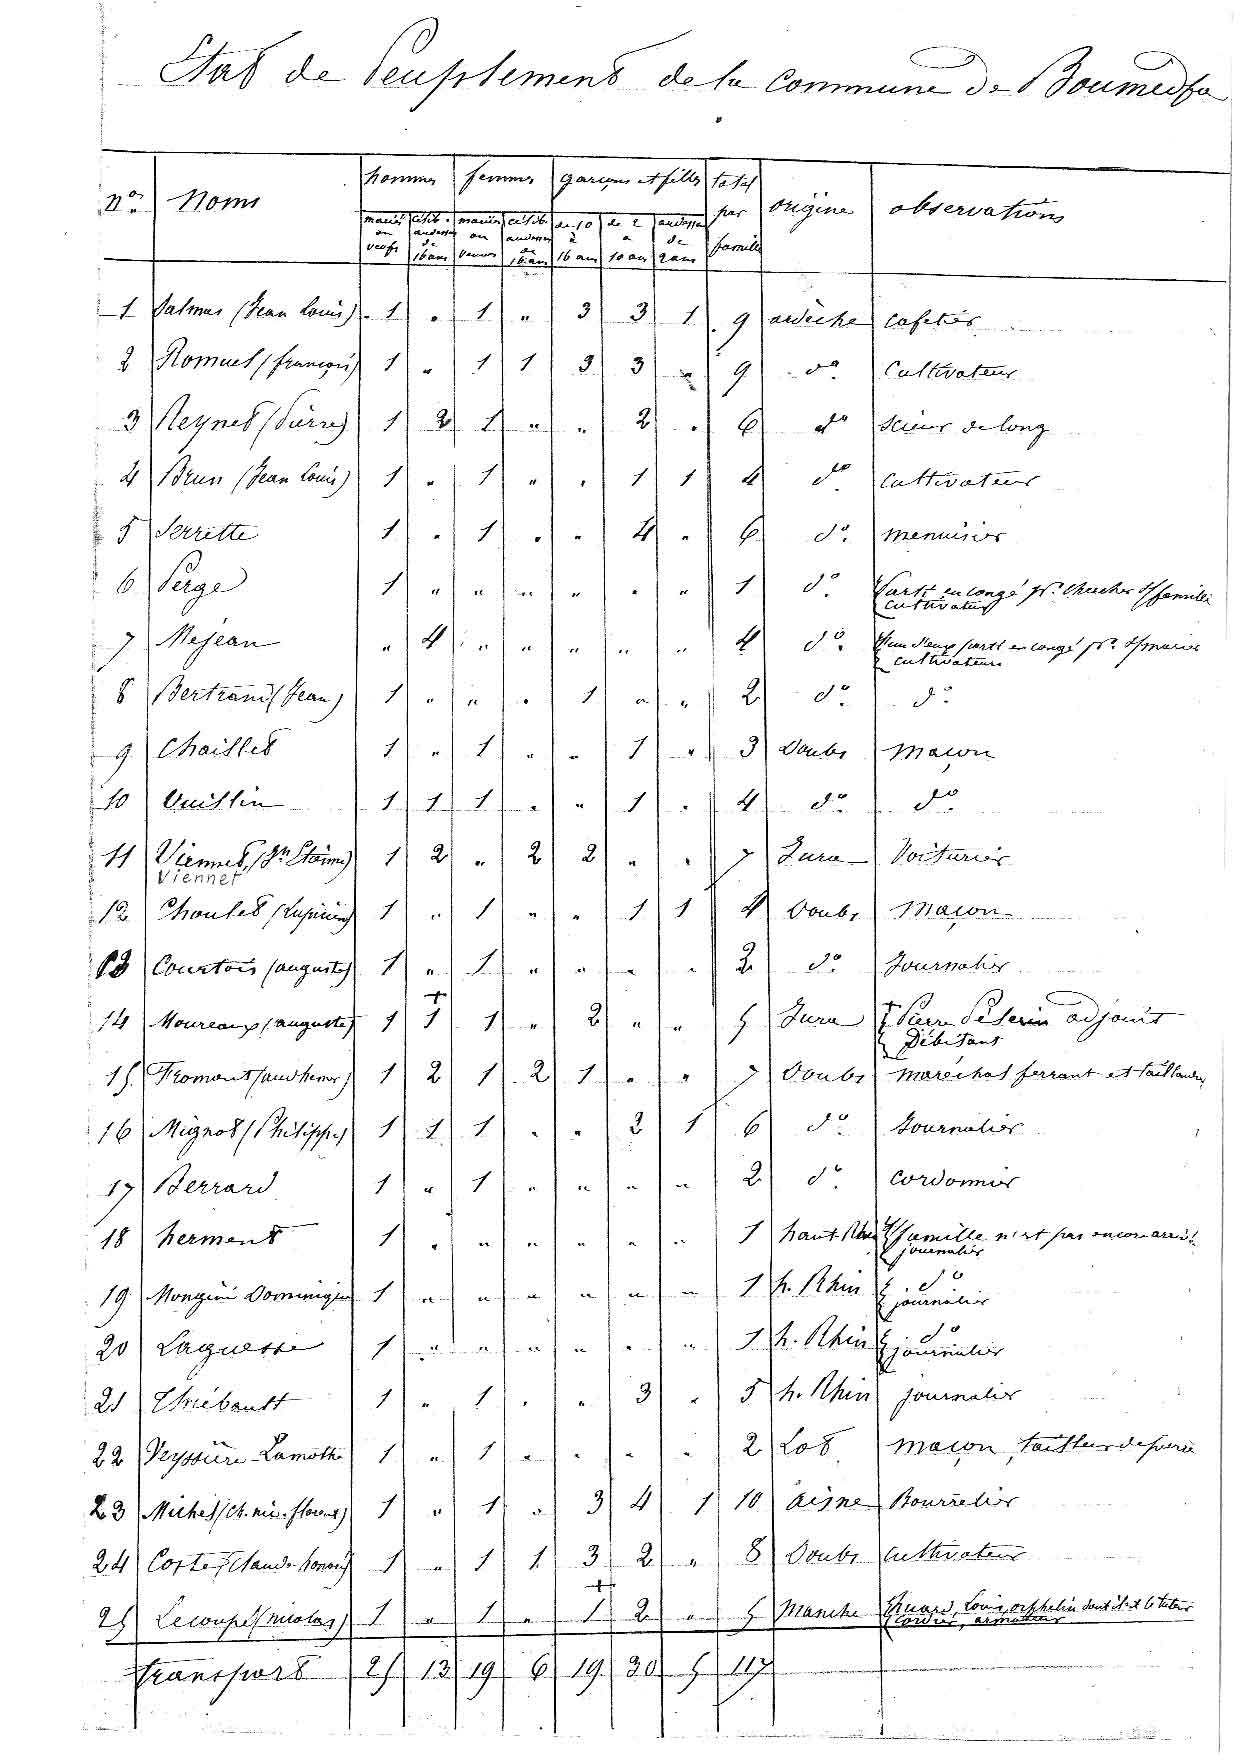 Etat de Peuplement de la commune de Boumedfa
nos Noms hommes femmes garçons et filles total par famille origine observations
mariés ou veufs célib. audessus de 16 ans mariées ou veuves célib. audessus de 16 ans de 10 à 16 ans de 2 à 10 ans audessous de 2 ans
1 Dalmas (Jean Louis) 1 " 1 " 3 3 1 9 ardèche cafetier
2 Romuet (françois) 1 " 1 1 3 3 " 9 do Cultivateur
3 Reynet (Pierre) 1 2 1 " " 2 " 6 do Scieur de long
4 Brun (Jean Louis) 1 " 1 " " 1 1 4 do Cultivateur
5 Serrette 1 " 1 " " 4 " 6 do menuisier
6 Perge 1 " " " " " " 1 do Parti en congé pr. chercher s/famille
cultivateur
7 Mejean " 4 " " " " " 4 do l'un d'eux parti en congé pr. s/marier
cultivateurs
8 Bertrand (Jean) 1 " " " 1 " " 2 do do
9 Chaillet 1 " 1 " " 1 " 3 Doubs Maçon
10 Vuillin 1 1 1 " " 1 " 4 do do
11 Viennet (Jn Etienne) 1 2 " 2 2 " " 7 Jura Voiturier
Viennet
12 Choulet 1 " 1 " " 1 1 4 Doubs Maçon
13 Courtois (auguste) 1 " 1 " " " " 2 do Journalier
14 Moureaux (auguste) 1 + 1 1 " 2 " " 5 Jura + Pierre Pelerin adjoint
Débitant
15 Fromont 1 2 1 2 1 " " 7 Doubs maréchal ferrant et taillandier
16 Mignot (Philippe) 1 1 1 " " 2 1 6 do Journalier
17 Berrard 1 " 1 " " " " 2 do cordonnier
18 herment 1 " " " " " " 1 haut Rhin s/famille n'est pas encore arrivée
journalier
19 Mongini Dominique 1 " " " " " " 1 h. Rhin do
journalier
20 Laguesse 1 " " " " " " 1 h. Rhin do
journalier
21 Thiébault 1 " 1 " " 3 " 5 h. Rhin journalier
22 Veyssière Lamothe 1 " 1 " " " " 2 Lot maçon, tailleur de pierre
23 Michel 1 " 1 " 3 4 1 10 aisne Bourrelier
24 Corte (Claude 1 " 1 1 3 2 " 8 Doubs cultivateur
25 Lecoupé (nicolas) 1 " 1 " + 1 2 " 5 Manche Louis, orphelin dont il est le tuteur
cordier,
transport 25 13 19 6 19 30 5 117